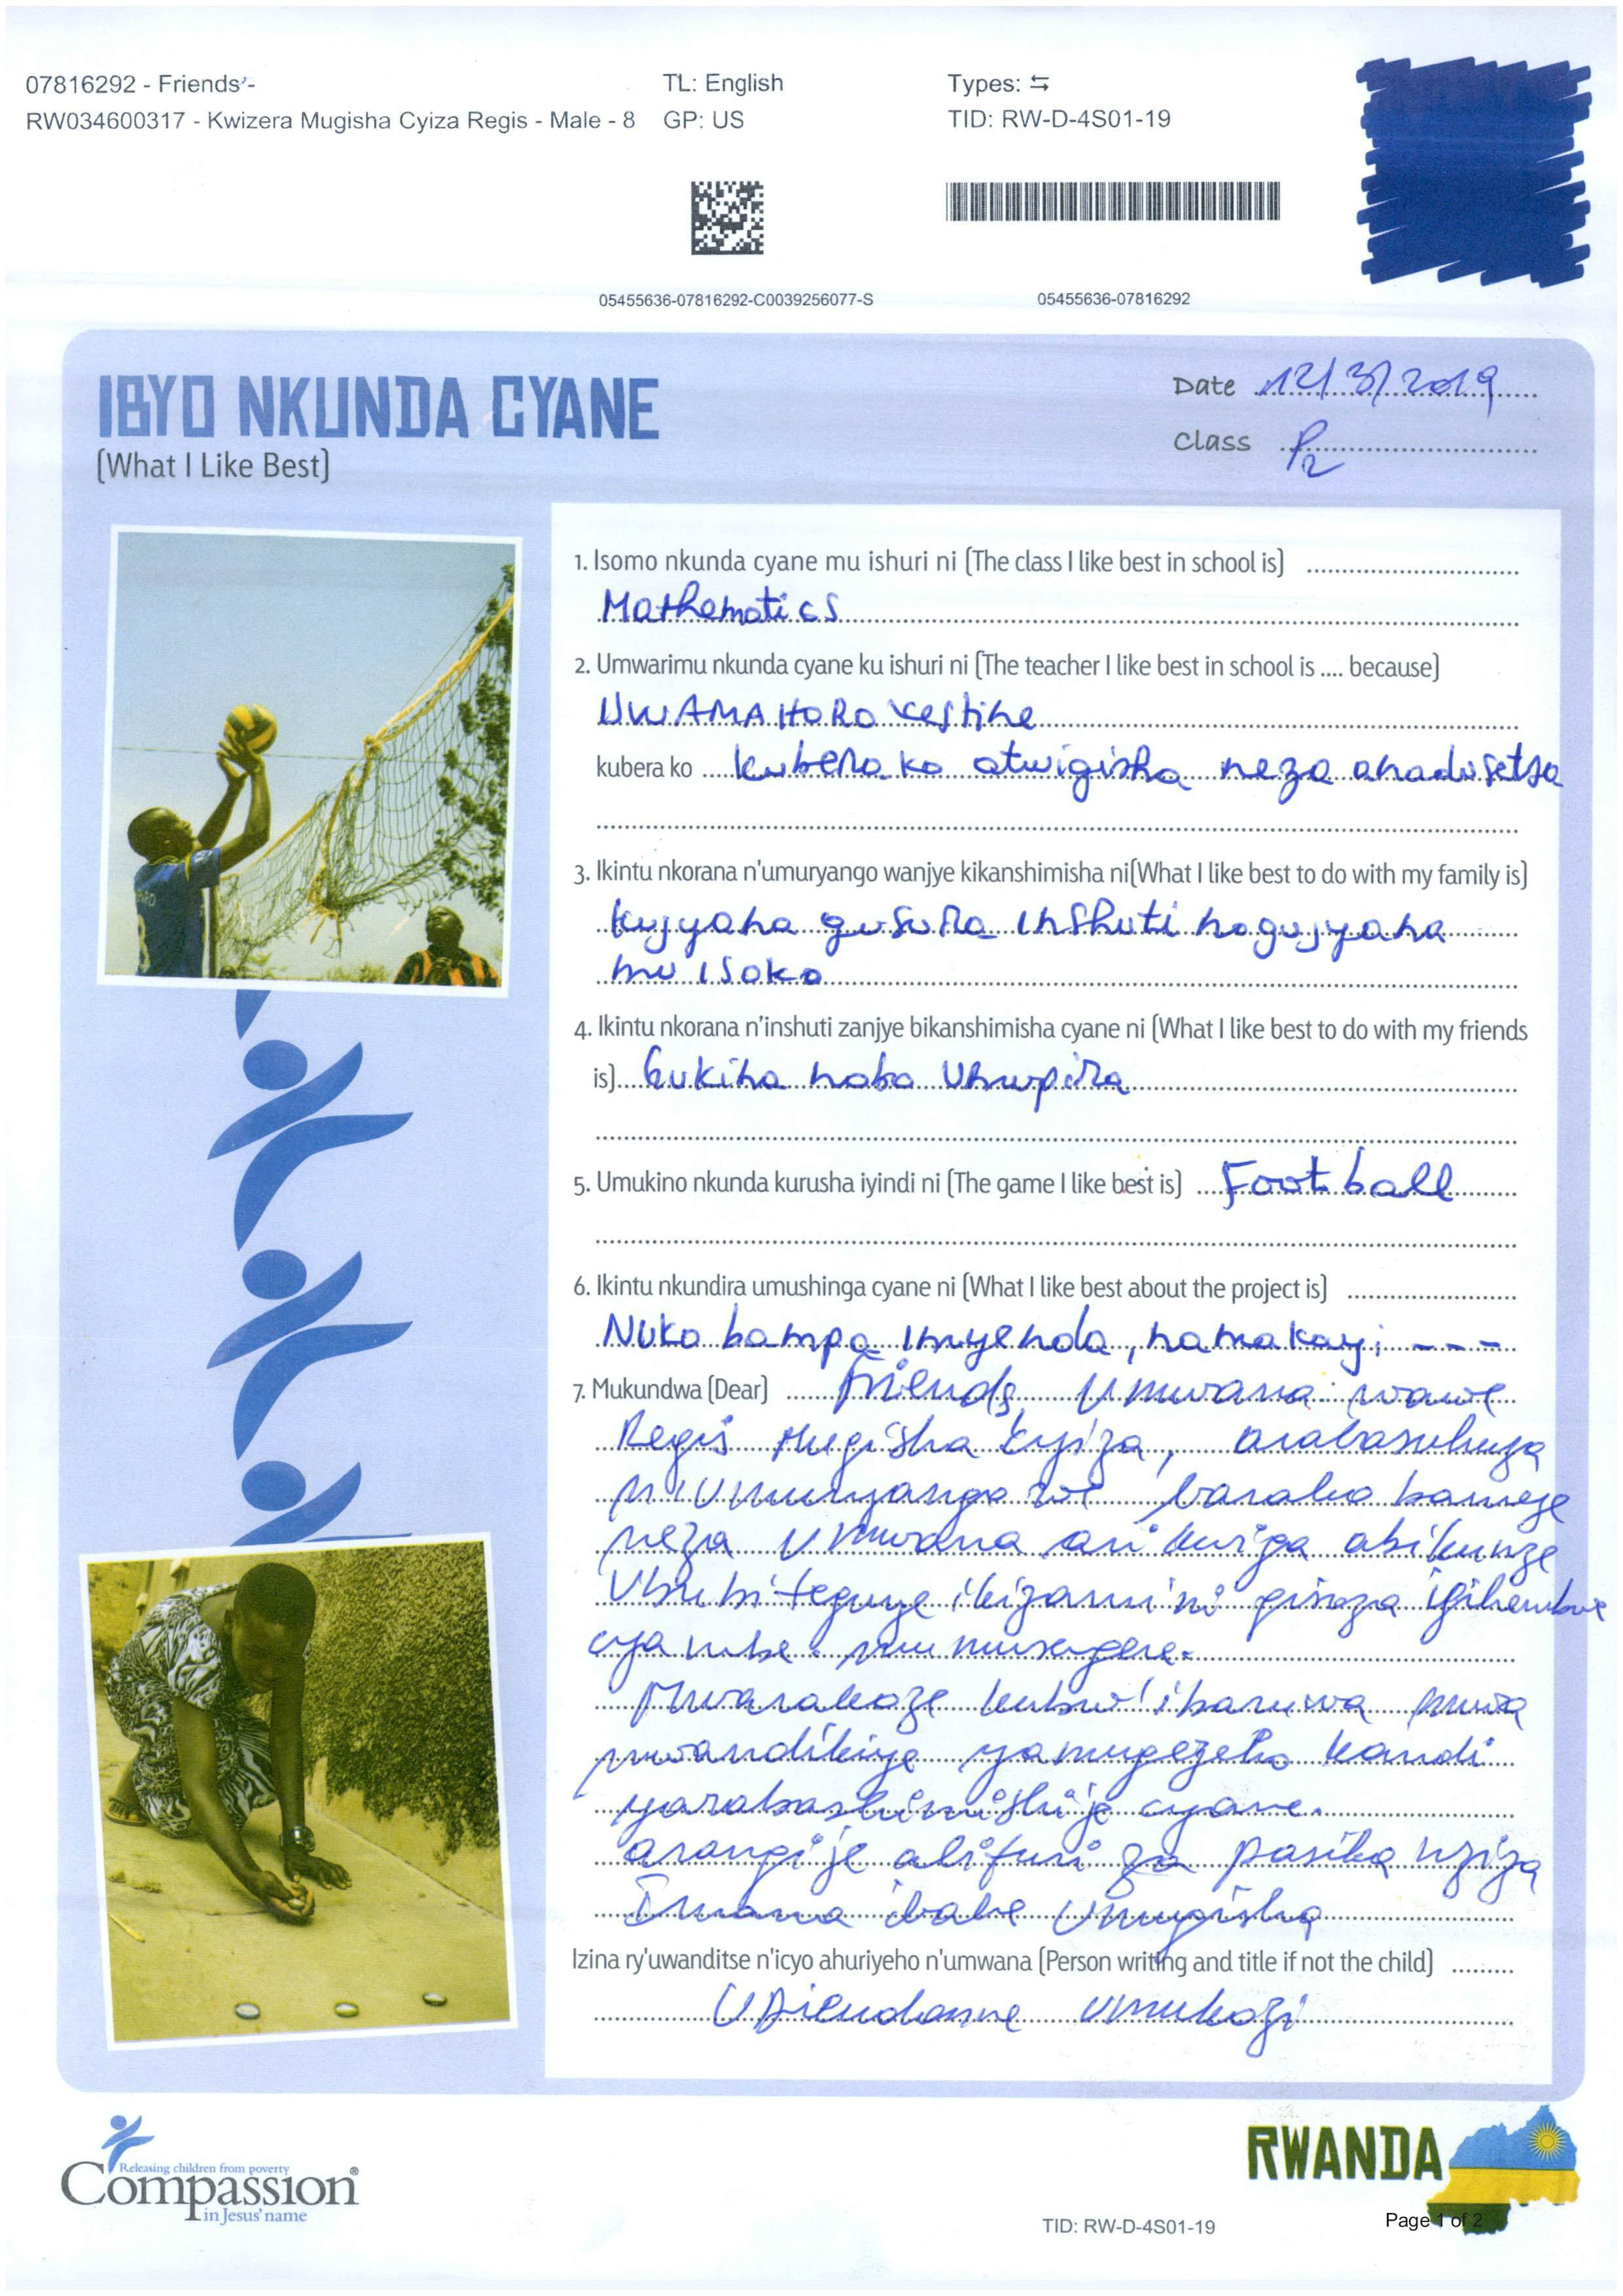 07816292 - Friends'-
TL: English
Types: ⇆
RW034600317 - Kwizera Mugisha Cyiza Regis - Male - 8
GP: US
TID: RW-D-4S01-19
05455636-07816292-C0039256077-S
05455636-07816292
IBYO NKUNDA CYANE
(What I Like Best)
Date 12/3/2019
Class P2
1. Isomo nkunda cyane mu ishuri ni (The class I like best in school is)
Mathematics
2. Umwarimu nkunda cyane ku ishuri ni (The teacher I like best in school is .... because)
UWAMAHORO
kubera ko kubera ko atwigisha neza anadusetsa
3. Ikintu nkorana n'umuryango wanjye kikanshimisha ni(What I like best to do with my family is)
kujyana gusura inshuti nogujyana
mu isoko
4. Ikintu nkorana n'inshuti zanjye bikanshimisha cyane ni (What I like best to do with my friends
is) Gukina nabo Umupira
5. Umukino nkunda kurusha iyindi ni (The game I like best is) Football
6. Ikintu nkundira umushinga cyane ni (What I like best about the project is)
Nuko bampa Imyenda, namakayi ---
7. Mukundwa (Dear) Friends, Umwana wawe
Regis Mugisha Cyiza, arabasuhuza
n'Umuryango we baraho bameze
neza Umwana ari kwiga abikunze
Ubu biteguye ikizamini gisoza igihembwe
cya mbe mu
Mwarakoze kubw'ibaruwa mwa
mwandikiye yamugezeho kandi
yarabashimishije cyane.
arangije abifuri za pasika nziza
Imana ibahe Umugisha
Izina ry'uwanditse n'icyo ahuriyeho n'umwana (Person writing and title if not the child)
umukozi
Releasing children from poverty
Compassion®
in Jesus' name
RWANDA
TID: RW-D-4S01-19
Page 1 of 2